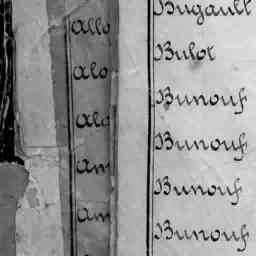 Allo
Alo
Alo
Am
Am
Bugault
Bulot
Bunouf
Bunouf
Bunouf
Bunouf